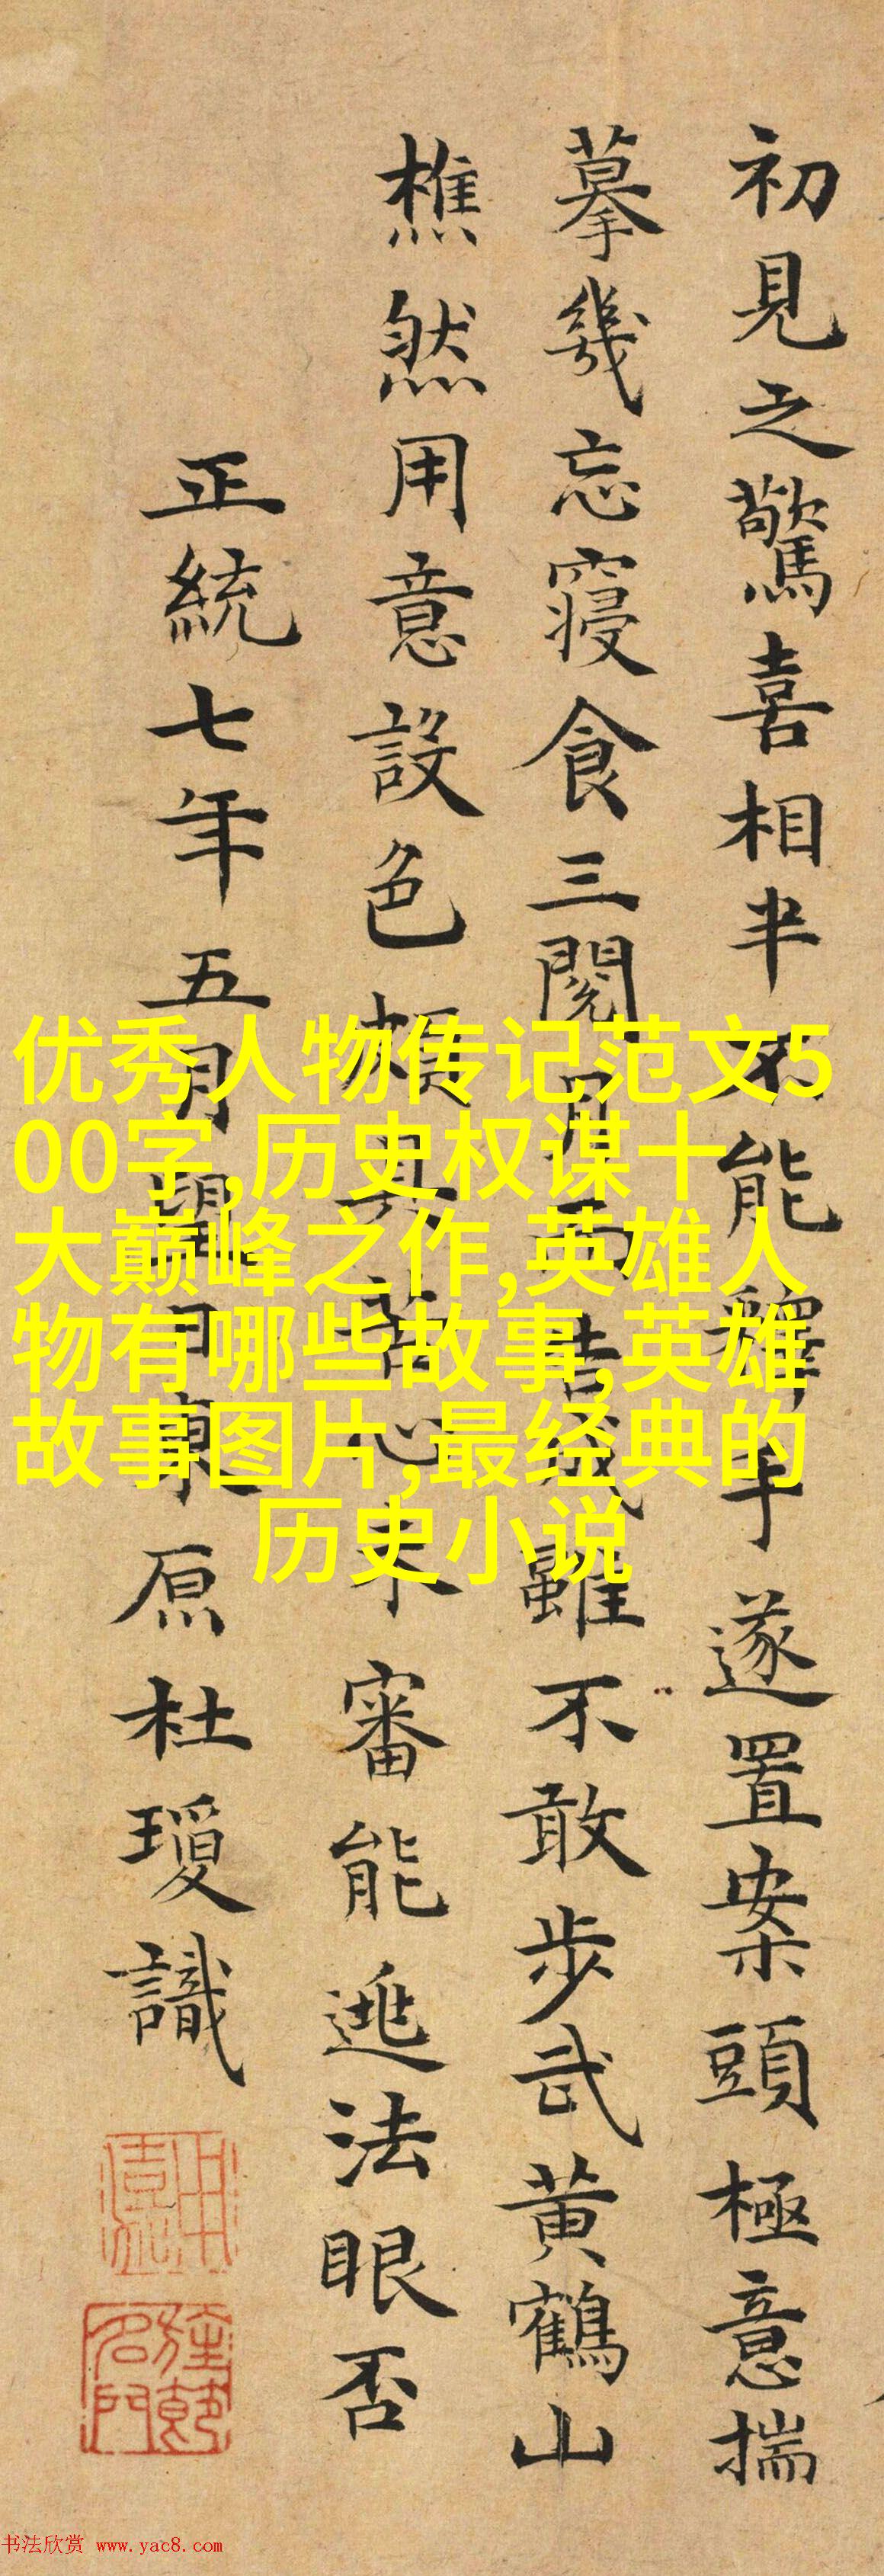 初見之驚喜相半不能釋手遂置案頭極意揣
摹幾忘寢食三閱月而告成雖不敢步武黃鶴山
樵然用意設色頗具苦心未審能逃法眼否
正統七年五月望日東原杜瓊識
优秀人物传记范文5
00字,历史权谋十
大巅峰之作,英雄人
物有哪些故事,英雄
故事图片,最经典的
历史小说
书法欣赏 www.yac8.com